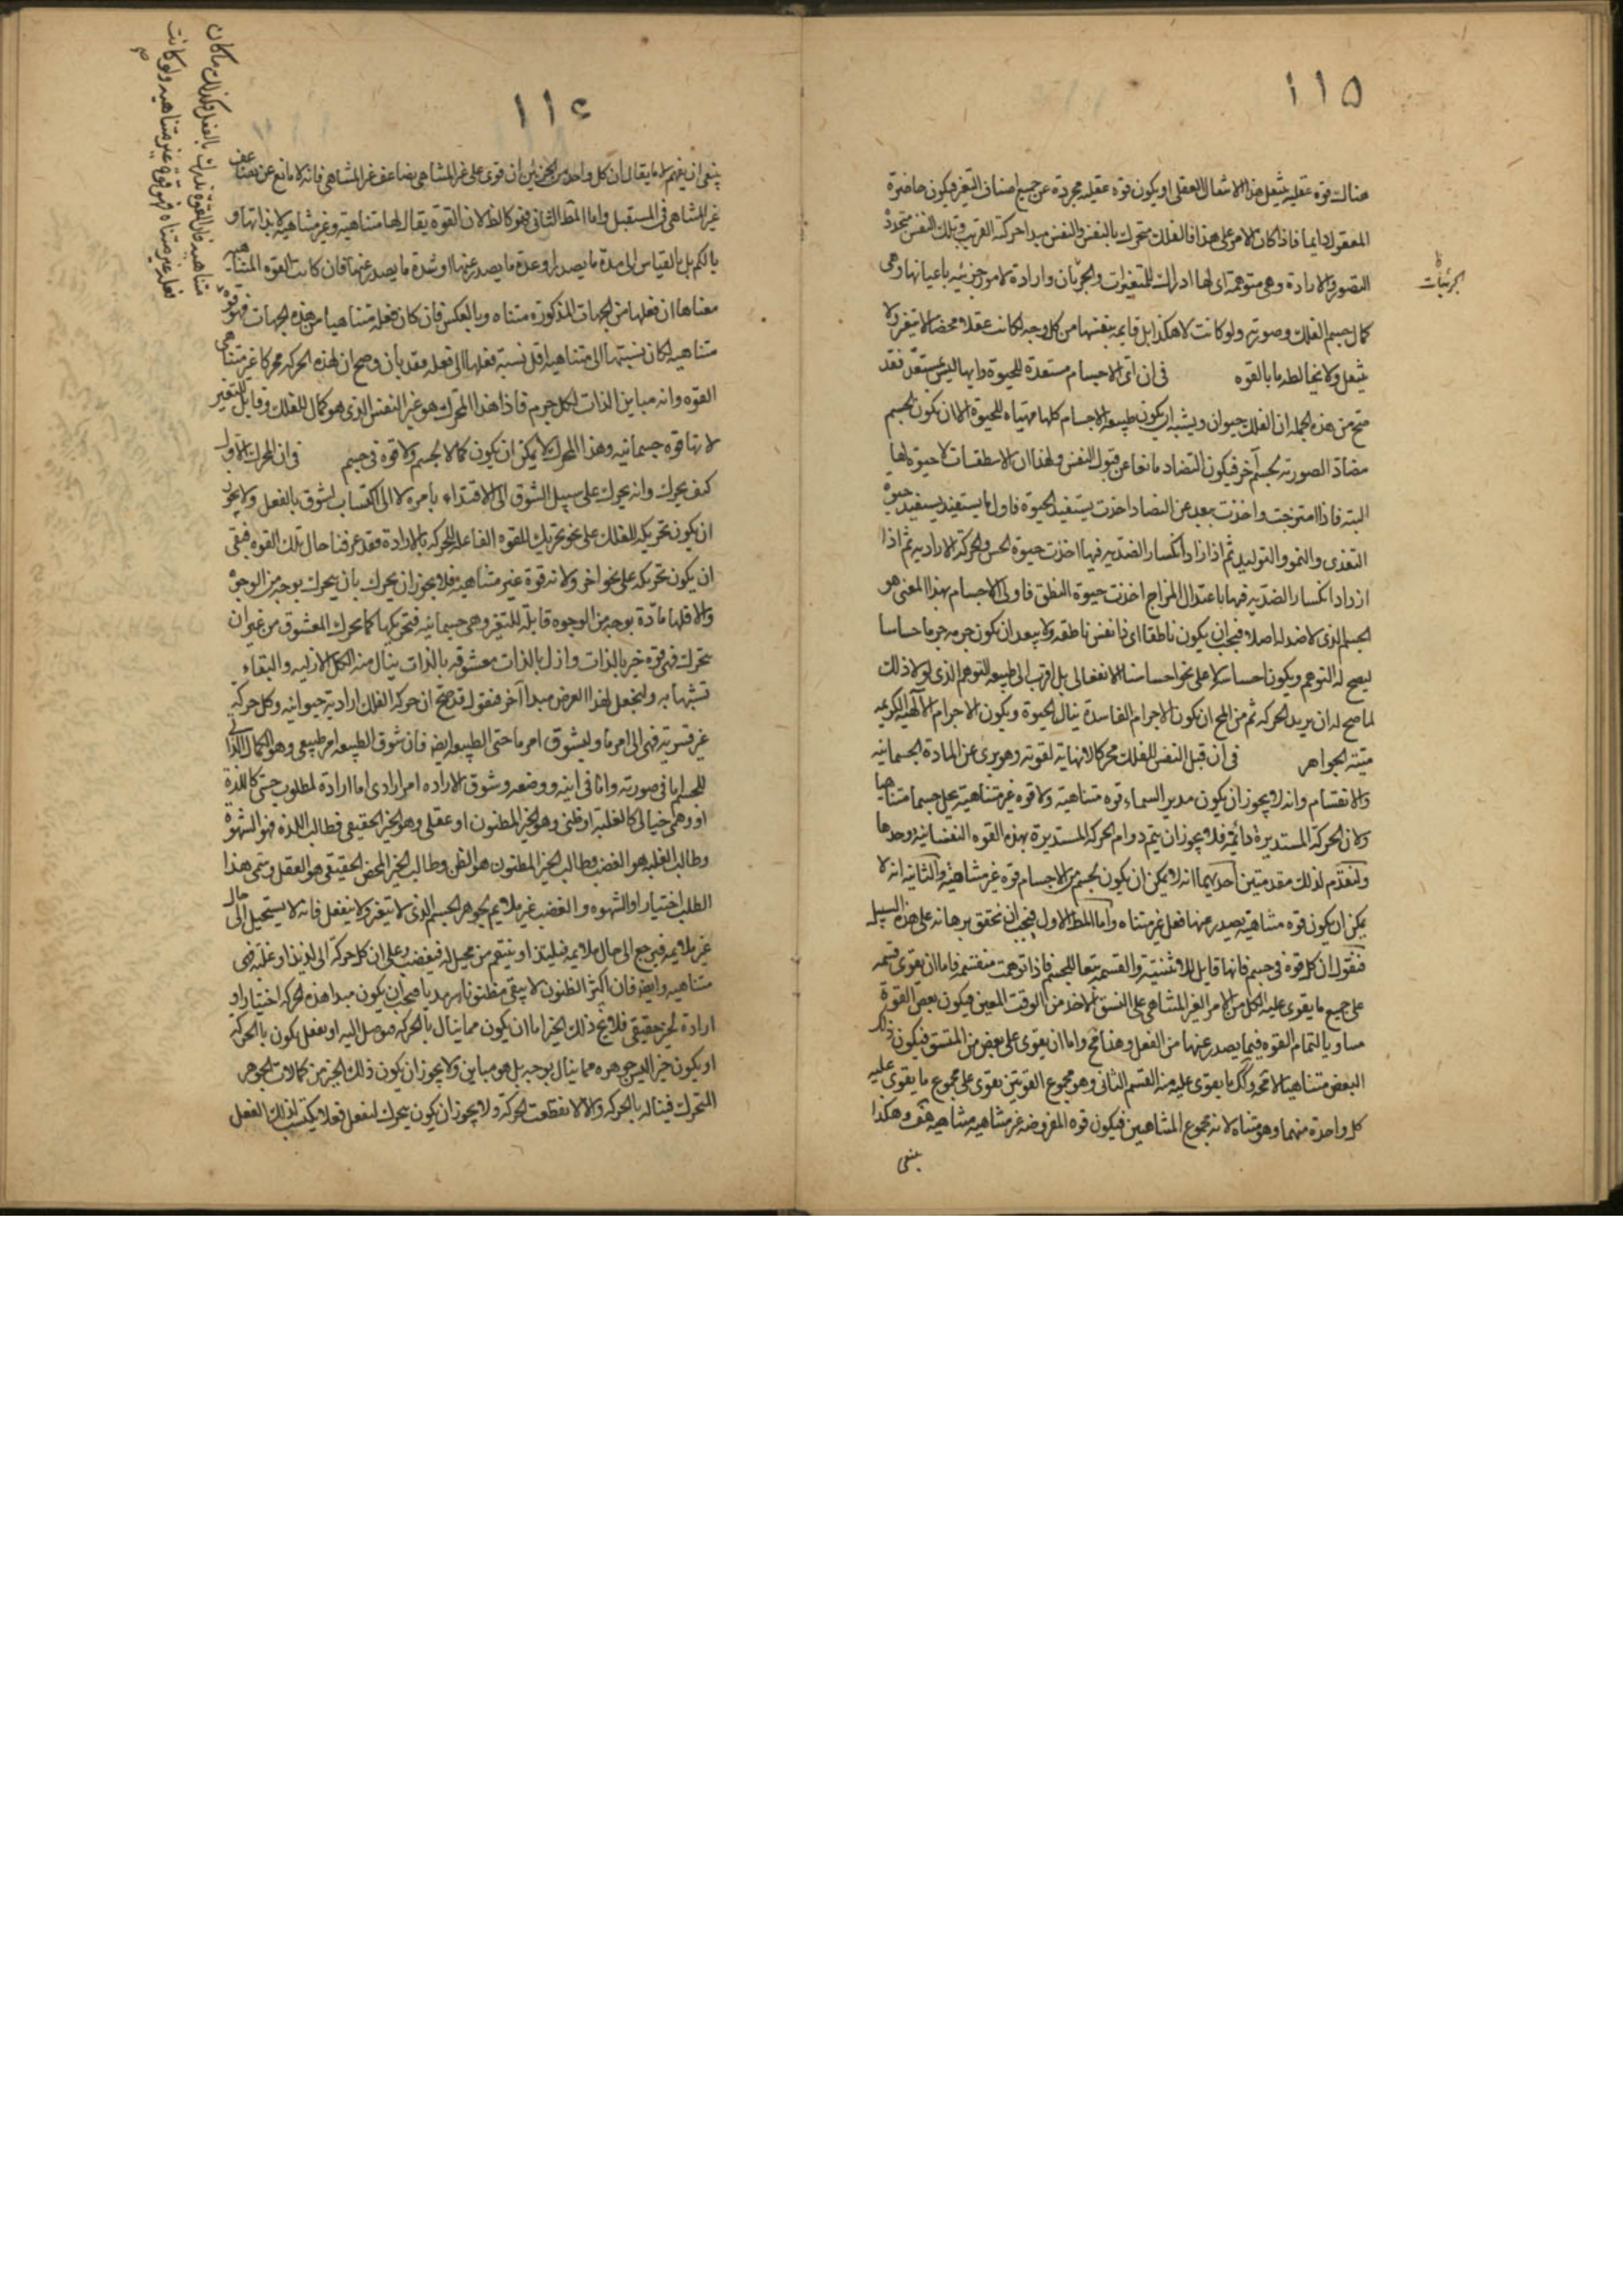 ١١٥
هناك قوة عقلية ينتقل هذا الانتقال العقلى او يكون قوة عقلية مجردة عن جميع اصناف التغير فيكون حاضرة
المعقول دايما فاذا كان الامر على هذا فالفلك متحرك بالنفس والنفس مبدا حركته القريب وتلك النفس متجددة
التصور والارادة وهى متوهمة اى لها ادراك للمتغيرات والجزئيات وارادة لامور جزئية باعيانها وهى
الجزئيات
كمال جسم الفلك وصورته ولو كانت لا هكذا بل قايمة بنفسها من كل وجه لكانت عقلا محضا لا يتغير ولا
ينتقل ولا يخالطه ما بالقوه فى ان اى الاجسام مستعدة للحيوة وايها ليس بمستعد فقد
صح من هذه الجملة ان الفلك حيوان ويشبه ان يكون طبيعة الاجسام كلها مهياة للحيوة الا ان يكون الجسم
مضاد الصورته لجسم آخر فيكون التضاد مانعا عن قبول النفس ولهذا ان الاسطقسات لا حيوة لها
البته فاذا امتزجت واخذت يبعد عن التضاد اخذت يستفيد الحيوة فاول ما يستفيد يستفيد حيوة
التغذى والنمو والتوليد ثم اذا ازداد انكسار الضدية فيها اخذت حيوة الحس والحركة الارادية ثم اذا
ازداد انكسار الضدية فيها باعتدال المزاج اخذت حيوة النطق فاولى الاجسام بهذا المعنى هو
الجسم الذى لا ضد له اصلا فيجب ان يكون ناطقا اى ذا نفس ناطقه ولا يبعد ان يكون جرمه جرما حساسا
ليصح له التوهم ويكون احساسه لا على نحو احساسنا الانفعالى بل اقرب الى طبيعة التوهم الذى لولا ذلك
لما صح له ان يريد الحركه ثم من المح ان تكون الاجرام الفاسدة ينال الحيوة ويكون الاجرام الآلهية الكريمه
ميتة الجواهر فى ان قبل النفس للفلك محركا لا نهاية لقوته وهو برى عن المادة الجسمانيه
والانقسام وانه لا يجوز ان يكون مدبر السماء قوه متناهية ولا قوه غير متناهية يحل جسما متناهيا
ولان الحركة المستديرة دائمة فلا يجوز ان يتم دوام الحركة المستديرة بهذه القوه النفسانية وحدها
ولنقدم لذلك مقدمتين احديهما انه لا يمكن ان يكون لجسم من الاجسام قوة غير متناهية والثانية انه لا
يمكن ان يكون قوه متناهية يصدر عنها فعل غير متناه واما المط الاول فيجب ان نحقق برهانه على هذه السبيل
فنقول ان كل قوه فى جسم فانها قابل للاثنينية والقسمة تبعا للجسم فاذا توهمت منقسمة فاما ان يقوى قسمه
على جميع ما يقوى عليه الكل من الامر الغير المتناهى على النسق الاخذ من الوقت المعين فيكون بعض القوة
مساويا لتمام القوه فيما يصدر عنها من الفعل وهذا مح واما ان يقوى على بعض من المتسق فيكون ذلك
البعض متناهيا لا محه وكك ما يقوى عليه القسم الثانى وهو مجموع القوتين يقوى على مجموع ما يقوى عليه
كل واحدة منهما وهو متناه لانه مجموع المتناهيين فيكون قوه المفروضه غير متناهيه متناهيه هف وهكذا
ينبغى
١١٦
ينبغى ان يفهم لا ما يقال ان كل واحد من الجزئين ان قوى على غير المتناهى يضاعف غير المتناهى فانه لا مانع عن تضاعف
غير المتناهى فى المستقبل واما المط الثانى فهو كالظ لان القوة يقال لها متناهية وغير متناهية لا بذاتها و
بالكم بل بالقياس الى مدة ما يصدر او عدة ما يصدر عنها او شدة ما يصدر عنها فان كانت القوه المتناهيه
معناها ان فعلها من الجهات المذكورة متناه وبالعكس فان كان فعله متناهيا من هذه الجهات فهو قوة
متناهيه لكان نسبتها الى متناهيه اقل نسبة فعلها الى فعله فقد بان وصح ان لهذه الحركه محركا غير متناهى
القوه وانه مباين الذات لكل جرم فاذا هذا المحرك هو غير النفس الذى هو كمال للفلك وقابل للتغير
لانها قوه جسمانيه وهذا المحرك لا يمكن ان يكون كمالا لجسم ولا قوه فى جسم فى ان المحرك الاول
كيف يحرك وانه يحرك على سبيل الشوق الى الاقتداء بامره لا الى اكتساب الشوق بالفعل ولا يجوز
ان يكون تحريكه للفلك على نحو تحريك القوه الفاعله للحركه بالارادة فقد عرفنا حال تلك القوه فبقى
ان يكون تحريكه على نحو اخر ولانه قوة غير متناهية فلا يجوز ان يحرك بان يتحرك بوجه من الوجوه
والا فلها مادة بوجه من الوجوه قابلة للتغير وهى جسمانيه فتحريكها كما يحرك المعشوق من غير ان
يتحرك فهى قوه خير بالذات وازل بالذات معشوقه بالذات ينال منه الكل الازليه والبقاء
تشبها به ولنجعل لهذا الغرض مبدا آخر فنقول قد صح ان حركة الفلك ارادية حيوانيه وكل حركه
غير قسرية فهى الى امر ما وليشوق امر ما حتى الطبيعه ايضا فان شوق الطبيعه امر طبيعى وهو الكمال الذاتى
للجسم اما فى صورته واما فى اينه ووضعه وشوق الاراده امر ارادى اما ارادة لمطلوب حسى كاللذة
او وهمى خيالى كالغلبة او ظنى وهو الخير المظنون او عقلى وهو الخير الحقيقى فطالب اللذه فهو الشهوة
وطالب الغلبه هو الغضب وطالب الخير المظنون هو الظن وطالب الخير المحض الحقيقى هو العقل ويسمى هذا
الطلب اختيارا والشهوه والغضب غير ملايم لجوهر الجسم الذى لا يتغير ولا ينفعل فانه لا يستحيل الى حال
غير ملايمه فيرجع الى حال ملايمه فيلتذ او ينتقم من مخيل له فيغضب وعلى ان كل حركة الى لذيذ او غلبه فهى
متناهيه وايضا فان اكثر الظنون لا يبقى مظنونا سرمديا فيجب ان يكون مبدا هذه الحركه اختيارا و
ارادة لخير حقيقى فلا يخ ذلك الخير اما ان يكون مما ينال بالحركه فيوصل اليه او بفعل يكون بالحركه
او يكون خيرا ليس جوهره مما ينال بوجه بل هو مباين ولا يجوز ان يكون ذلك الخير من كمالات الجوهر
المتحرك فيناله بالحركه والا لانقطعت الحركة ولا يجوز ان يكون يتحرك ليفعل فعلا يكتسب بذلك الفعل
متناهيه فان القوة تدرك بالفعل وكذلك ما كان
فعله غير متناه فهو قوة غير متناهيه ولو كانت
صح